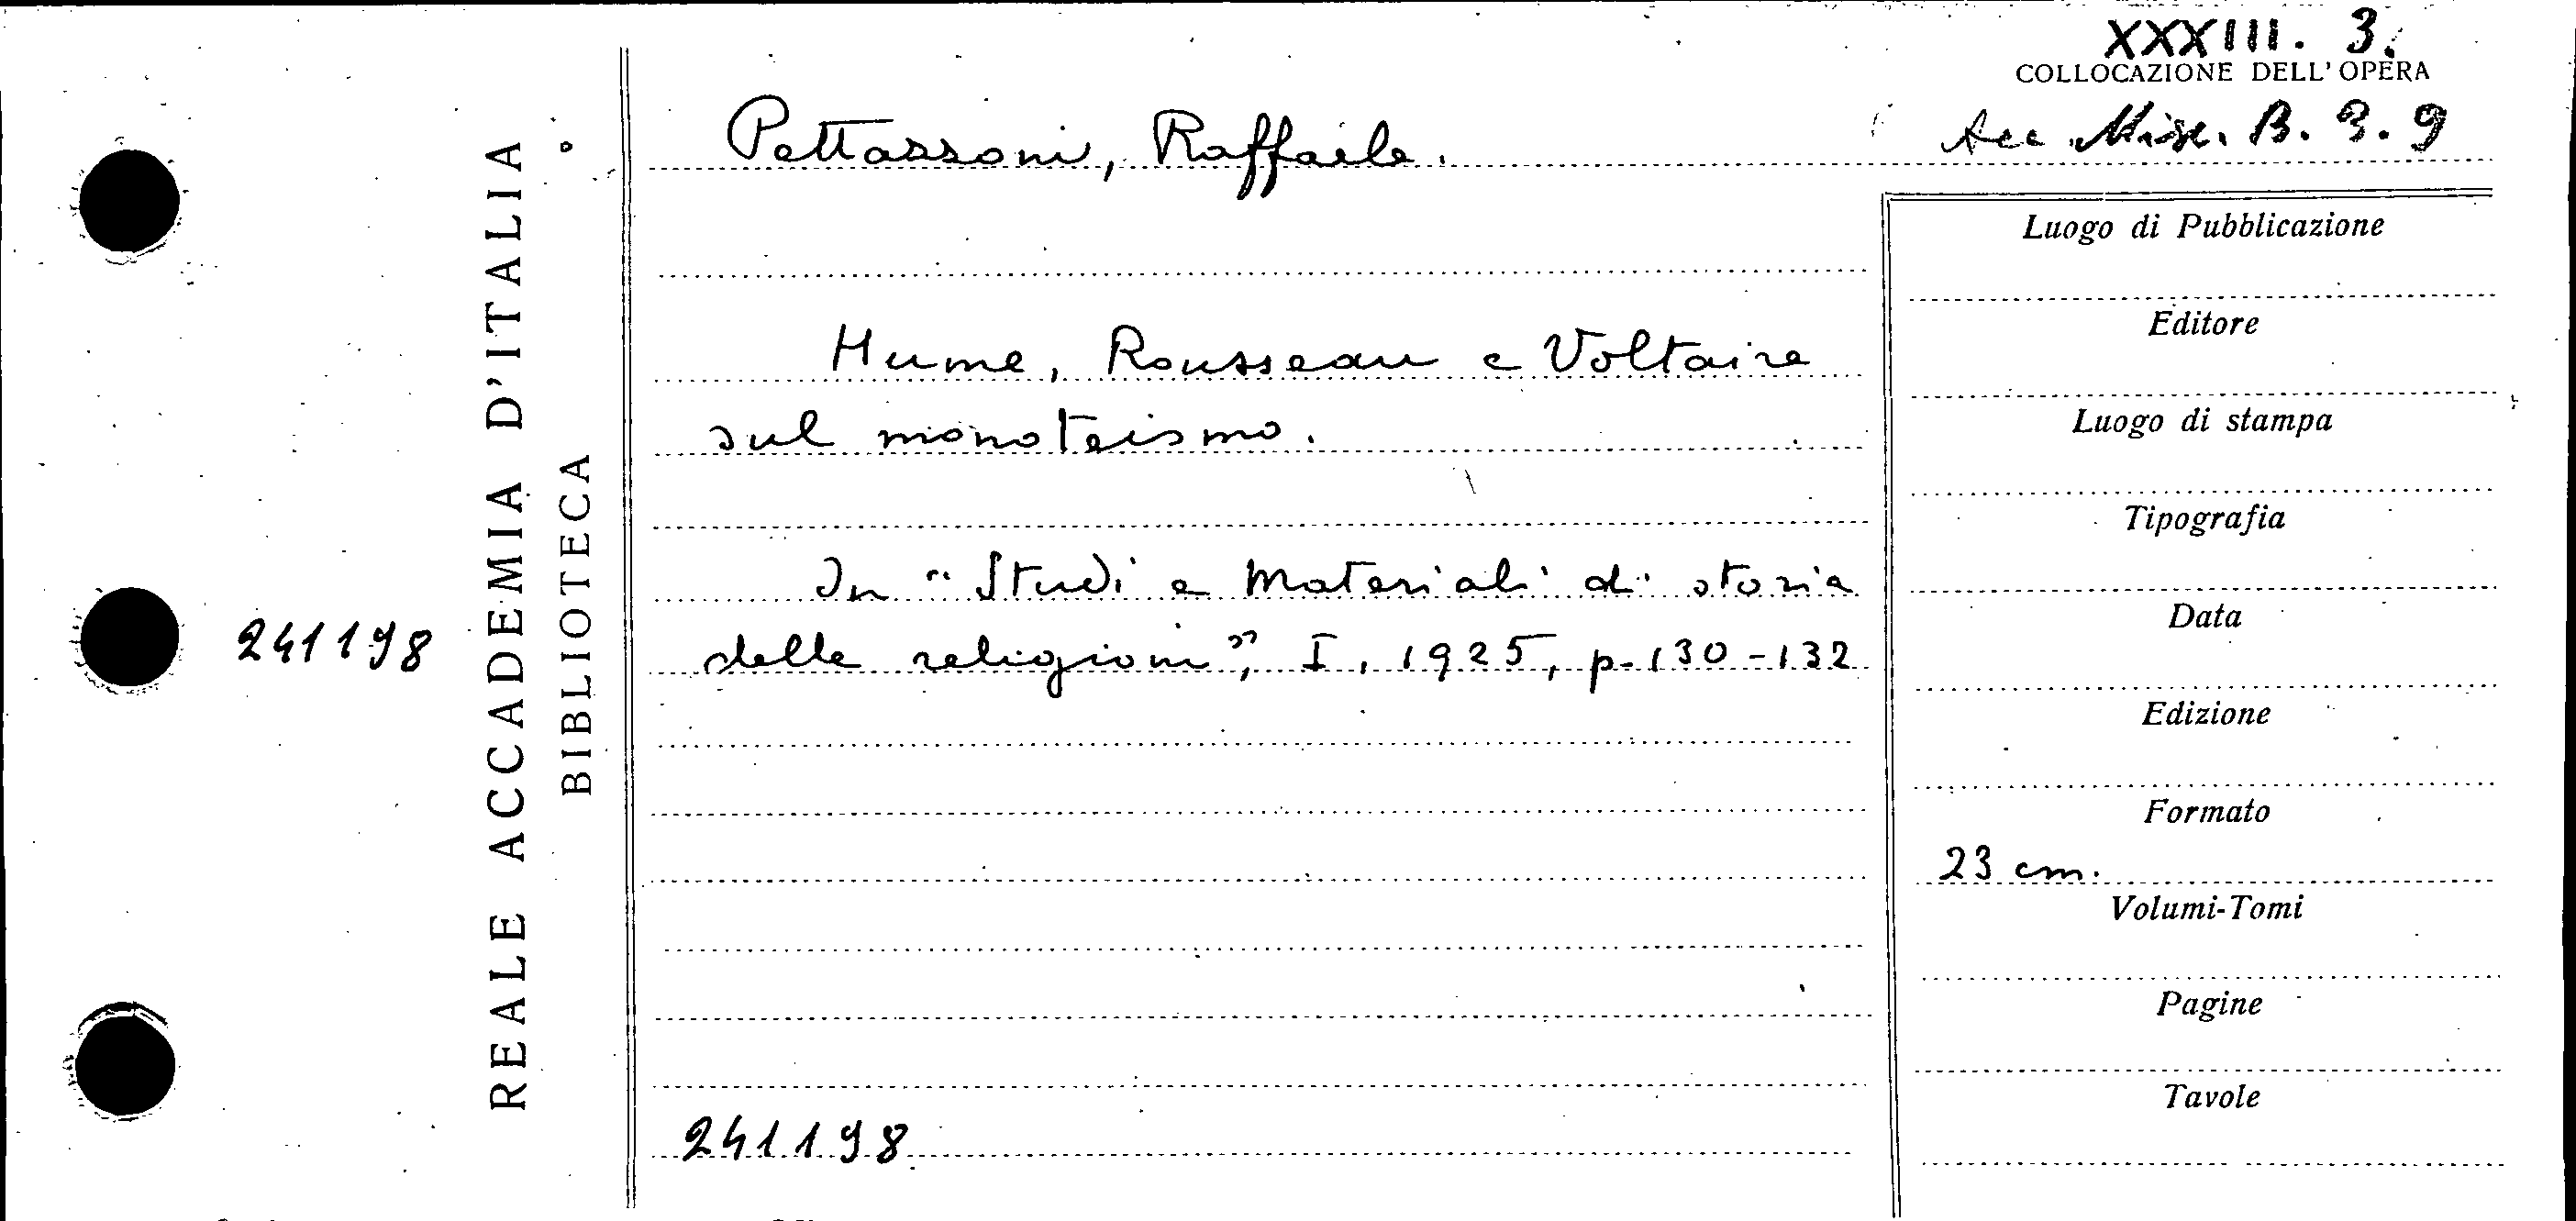 XXXIII. 3.
COLLOCAZIONE DELL'OPERA
Acc. Misc. B. 3. 9
Pettazzoni, Raffaele.
Hume, Rousseau e Voltaire
sul monoteismo.
In "Studi e Materiali di storia
delle religioni", I, 1925, p. 130-132
241198
241198
REALE ACCADEMIA D'ITALIA
BIBLIOTECA
Luogo di Pubblicazione
Editore
Luogo di stampa
Tipografia
Data
Edizione
Formato
23 cm.
Volumi-Tomi
Pagine
Tavole